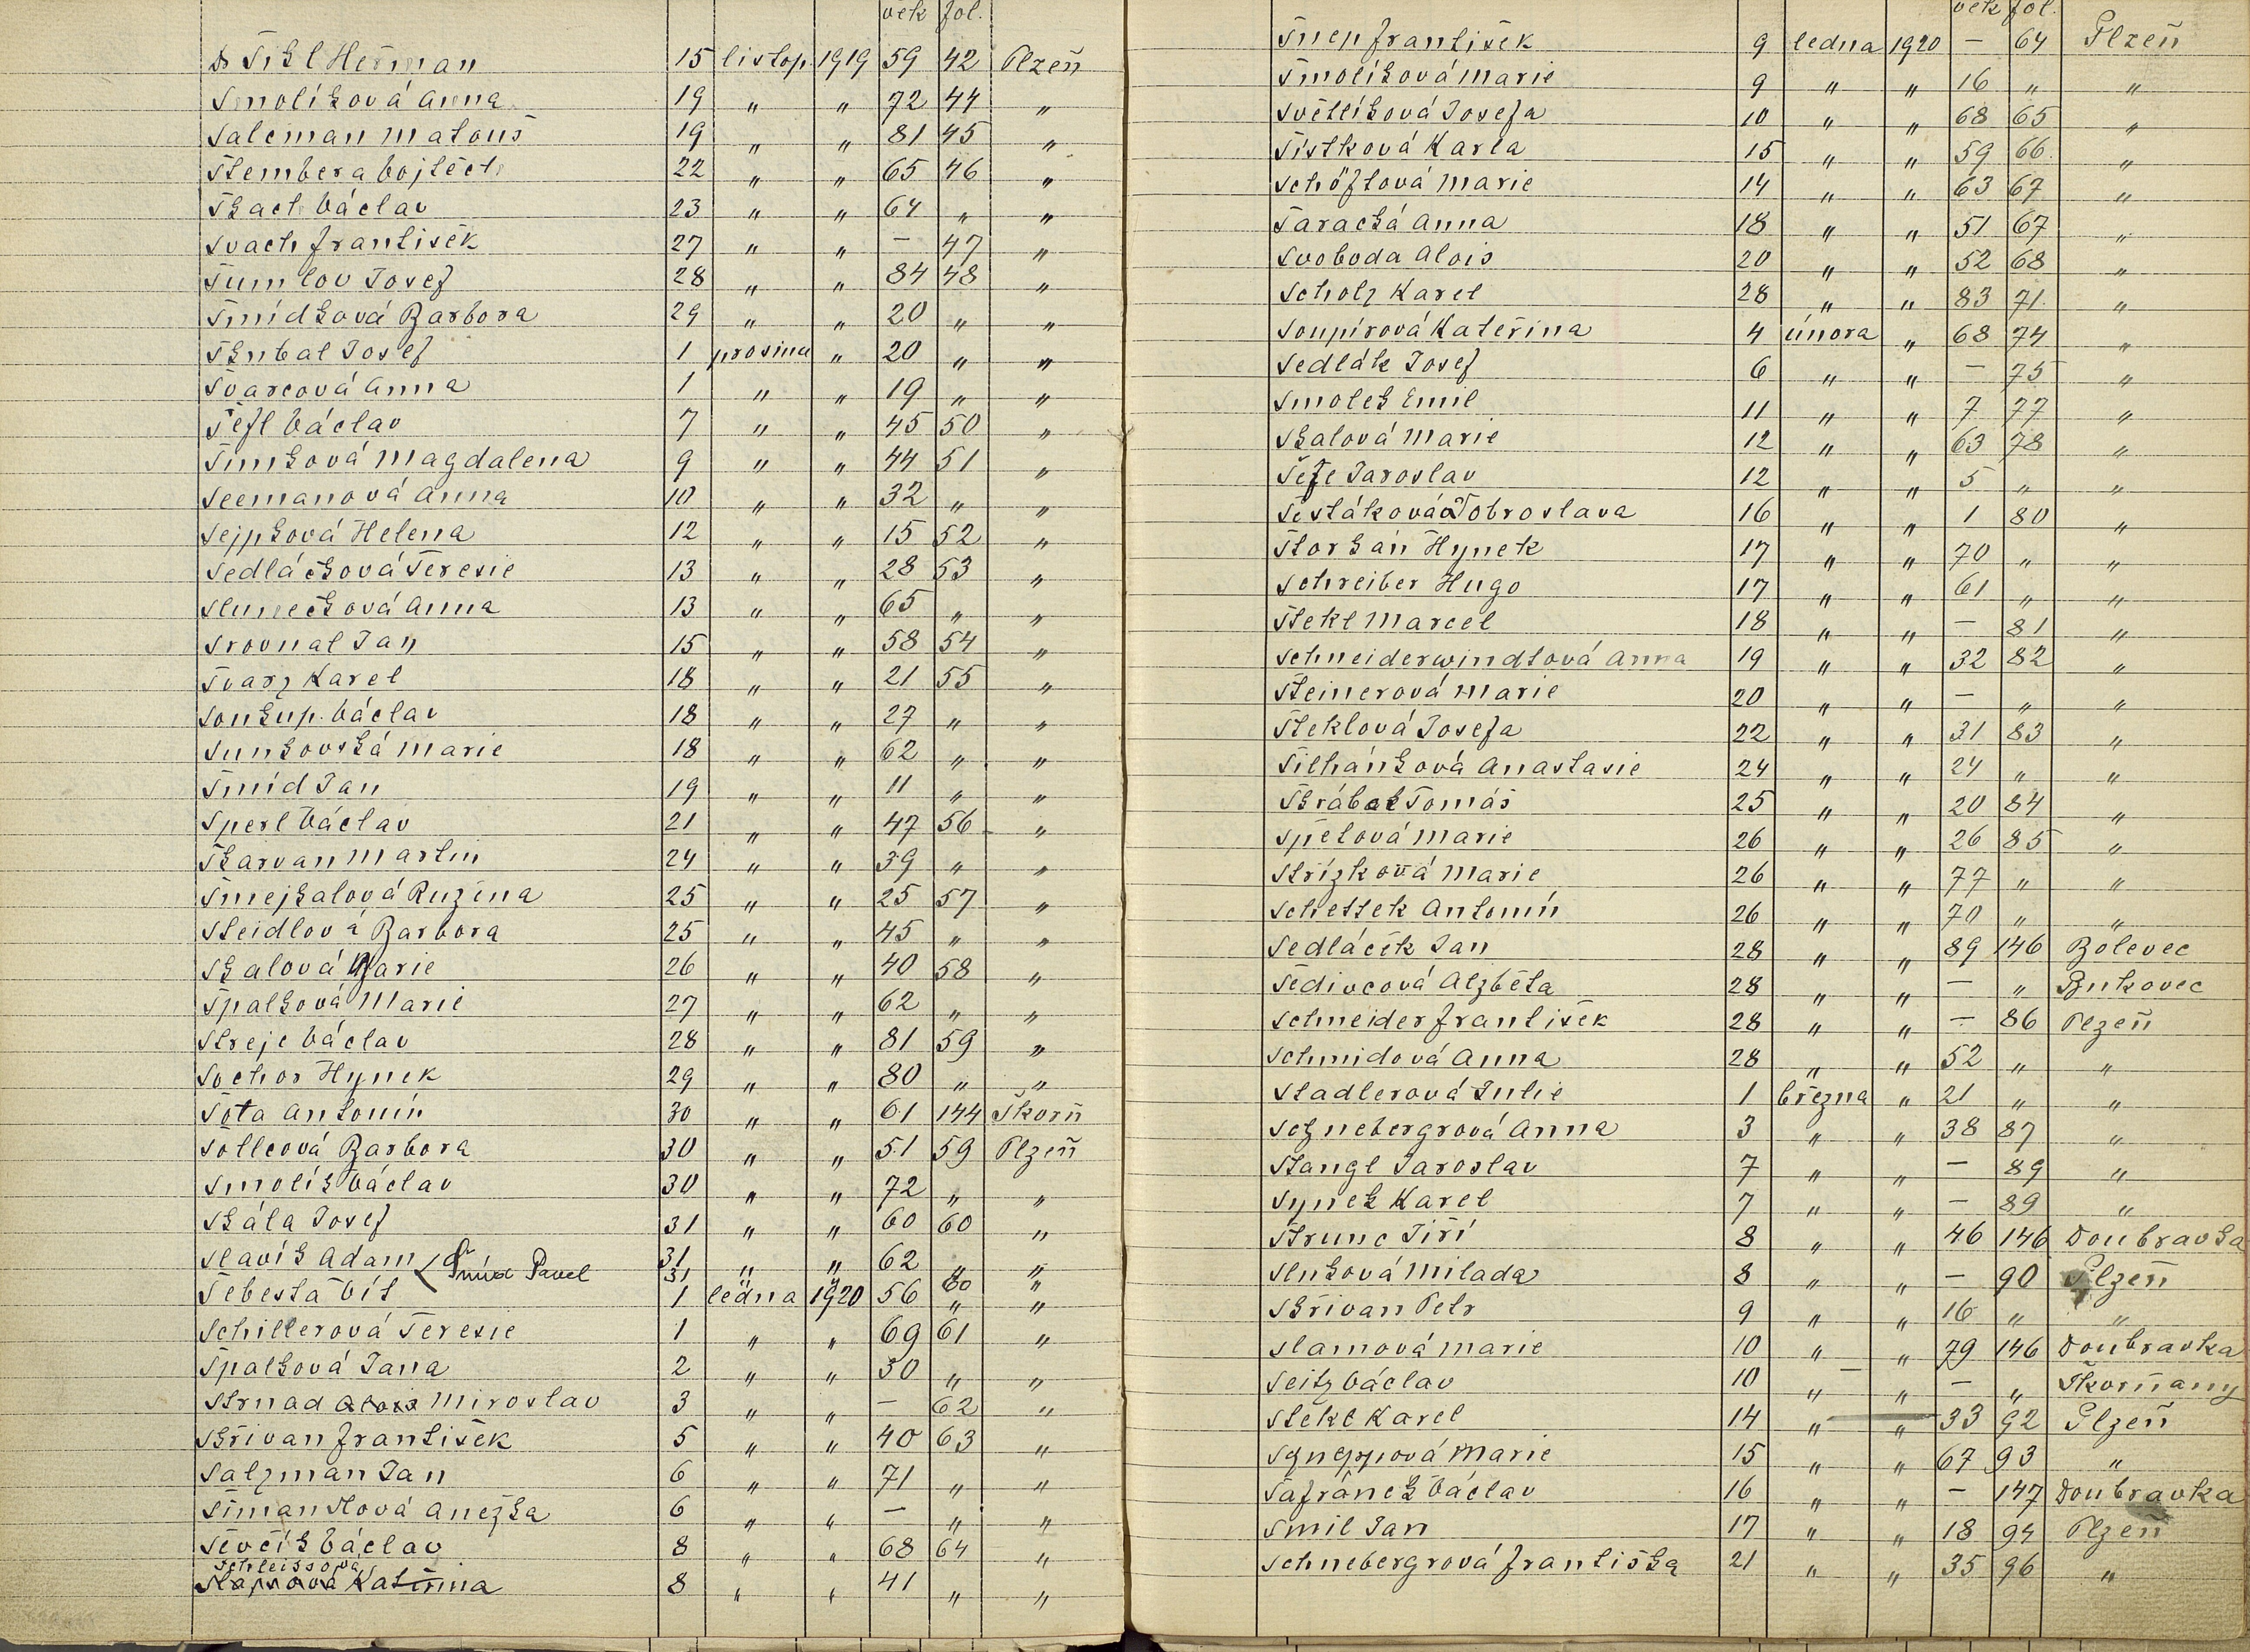 věk fol.
Dr Šikl Heřman 15 listop. 1919 59 42 Plzeň
Smolíková Anna 19 " " 72 44 "
Salcman Matouš 19 " " 81 45 "
Štembera Vojtěch 22 " " 65 46 "
Tkach Václav 23 " " 64 " "
Svach František 27 " " — 47 "
Šumlov Josef 28 " " 84 48 "
Šmídková Barbora 29 " " 20 " "
Škubal Josef 1 prosince " 20 " "
Švarcová Anna 1 " " 19 " "
Šefl Václav 7 " " 45 50 "
Šimková Magdalena 9 " " 44 51 "
Seemanová Anna 10 " " 32 " "
Sejpková Helena 12 " " 15 52 "
Sedláčková Teresie 13 " " 28 53 "
Slunečková Anna 13 " " 65 " "
Srovnal Jan 15 " " 58 54 "
Švarz Karel 18 " " 21 55 "
Soukup Václav 18 " " 27 " "
Sunkovská Marie 18 " " 62 " "
Šmíd Jan 19 " " 11 " "
Šperl Václav 21 " " 47 56 "
Škarvan Martin 24 " " 39 " "
Šmejkalová Ružena 25 " " 25 57 "
Steidlová Barbora 25 " " 45 " "
Skalová Marie 26 " " 40 58 "
Špalková Marie 27 " " 62 " "
Strejc Václav 28 " " 81 59 "
Sochor Hynek 29 " " 80 " "
Šota Antonín 30 " " 61 144 Škorň
Šollcová Barbora 30 " " 51 59 Plzeň
Smolík Václav 30 " " 72 " "
Skála Josef 31 " " 60 60 "
Slavík Adam 31 " " 62 " "
Šmíd Pavel 31 " " 60 "
Šebesta Vít 1 ledna 1920 56 " "
Schillerová Teresie 1 " " 69 61 "
Špalková Jana 2 " " 30 " "
Strnad Alois Miroslav 3 " " — 62 "
Skřivan František 5 " " 40 63 "
Salzman Jan 6 " " 71 " "
Šimandlová Anežka 6 " " — " "
Ševčík Václav 8 " " 68 64 "
Schleissová
Kateřina 8 " " 41 " "
věk fol.
Šnep František 9 ledna 1920 — 64 Plzeň
Šmolíková Marie 9 " " 16 " "
Světlíková Josefa 10 " " 68 65 "
Šístková Karla 15 " " 59 66 "
Schöftová Marie 14 " " 63 67 "
Šaracká Anna 18 " " 51 67 "
Svoboda Alois 20 " " 52 68 "
Scholz Karel 28 " " 83 71 "
Soupirová Kateřina 4 února " 68 74 "
Sedlák Josef 6 " " — 75 "
Smolek Emil 11 " " 7 77 "
Skalová Marie 12 " " 63 78 "
Šefe Jaroslav 12 " " 5 " "
Šestáková Dobroslava 16 " " 1 80 "
Štorkán Hynek 17 " " 70 " "
Schreiber Hugo 17 " " 61 " "
Štekl Marcel 18 " " — 81 "
Schneiderwindtová Anna 19 " " 32 82 "
Šteinerová Marie 20 " " — " "
Šteklová Josefa 22 " " 31 83 "
Šilhánková Anastasie 24 " " 24 " "
Škrábal Tomáš 25 " " 20 84 "
Spělová Marie 26 " " 26 85 "
Střízková Marie 26 " " 77 " "
Schettek Antonín 26 " " 70 " "
Sedláček Jan 28 " " 89 146 Bolevec
Šedivcová Alžběta 28 " " — " Bukovec
Schneider František 28 " " — 86 Plzeň
Schmidová Anna 28 " " 52 " "
Stadlerová Julie 1 března " 21 " "
Schnebergrová Anna 3 " " 38 87 "
Stangl Jaroslav 7 " " — 89 "
Synek Karel 7 " " — 89 "
Štrunc Jiří 8 " " 46 146 Doubravka
Sluková Milada 8 " " — 90 Plzeň
Skřivan Petr 9 " " 16 " "
Slamová Marie 10 " " 79 146 Doubravka
Seitz Václav 10 " " — " Škorňany
Štekl Karel 14 " " 33 92 Plzeň
Schneppová Marie 15 " " 67 93 "
Šafránek Václav 16 " " — 147 Doubravka
Smil Jan 17 " " 18 94 Plzeň
Schnebergrová Františka 21 " " 35 96 "